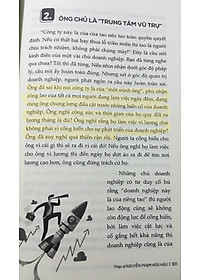 2. ÔNG CHỦ LÀ "TRUNG TÂM VŨ TRỤ"
"Công ty này là của tao nên tao toàn quyền quyết
định. Nếu có thất bại hay thua lỗ triền miên thì tao là người
chịu trách nhiệm, không phải chúng mày!". Đây là câu nói
kinh điển của đa số các ông chủ doanh nghiệp. Bạn đã từng nghe
qua chưa? Tôi thì đã từng. Nếu nhìn nhận dưới góc độ pháp
lý, câu nói ấy hoàn toàn đúng. Nhưng xét ở góc độ quản trị
doanh nghiệp, người nghe phát ngôn ra câu này hoàn toàn sai.
Ông đã sai khi nói công ty là của "một mình ông", phủ nhận
công lao của tất cả mọi người đang làm việc ngày đêm, đang
cùng ông chung lưng đấu cật trước những biến cố của doanh
nghiệp. Ông nghĩ công sức và thời gian của họ quy đổi ra
lương thưởng là đủ? Ông nghĩ rằng họ làm việc vì lương chứ
không phải vì cống hiến cho sự phát triển của doanh nghiệp?
Ông đã suy nghĩ quá thiển cận rồi. Người ta cống hiến cho
ông vì cái gì thì sẽ ra đi vì cái đó! Nếu ông nghĩ họ làm việc
cho ông vì lương thì đến ngày họ dứt áo ra đi để tìm nơi
lương cao hơn, ông cũng đừng thấy làm bất ngờ.
Những chủ doanh
nghiệp có tư duy cố hữu
rằng "doanh nghiệp này
là của riêng tao" thì người
lao động cũng sẽ không
còn động lực để cống hiến,
bởi dù làm việc cật lực và
cố gắng hết khả năng thì
doanh nghiệp cũng là của
Thạc sĩ NGUYỄN PHẠM HỮU HẬU | 101